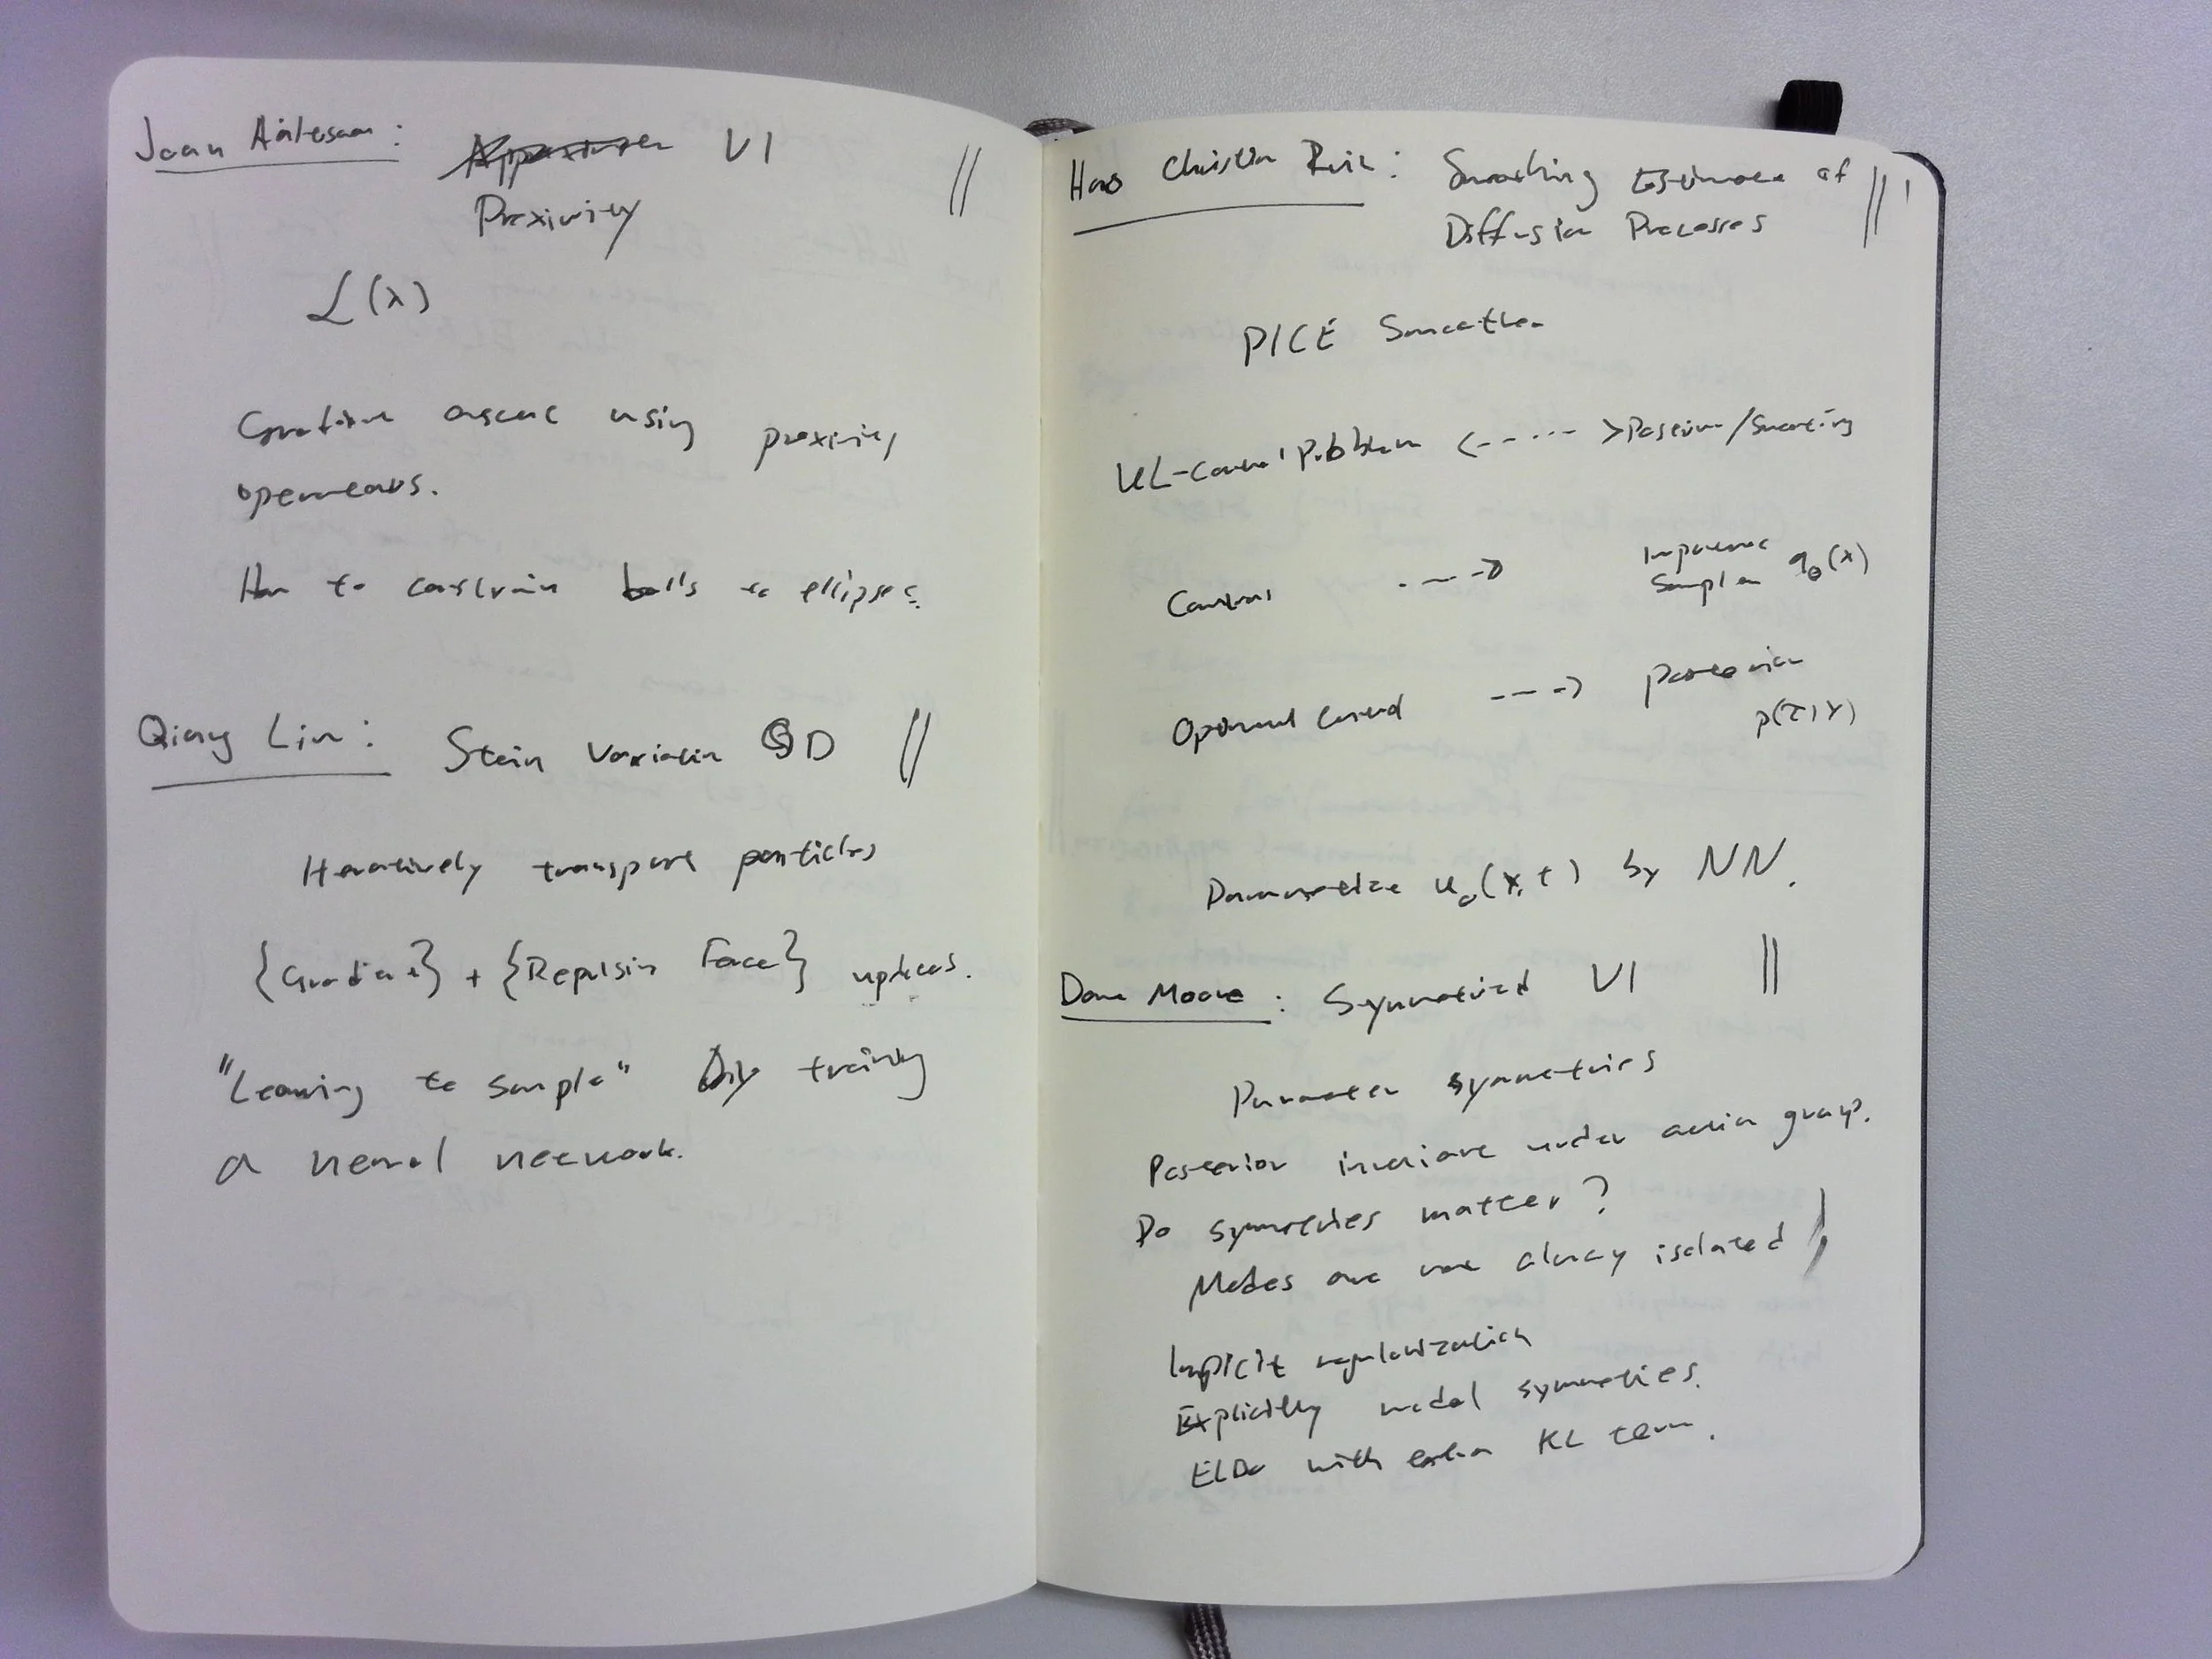 Jaan Altosaar: VI
Proximity
L(λ)
Gradient ascent using proximity
operators.
How to constrain balls to ellipses.
Qiang Liu: Stein Variation GD
Iteratively transport particles
{Gradient} + {Repulsin Force} updates.
"Learning to sample" by training
a neural network.
Hans Christian Ruiz: Smoothing Estimates of
Diffusion Processes
PICE Smoother
KL-control Problem <-----> Posterior/Smoothing
Control ----> Importance
Sampler qθ(x)
Optimal Control ---> posterior
p(τ|Y)
Parametrize uθ(x,t) by NN.
Dave Moore: Symmetrized VI
Parameter symmetries
Posterior invariant under action group.
Do symmetries matter?
Modes are not always isolated!
Implicit regularization
Explicitly model symmetries.
ELBO with extra KL term.